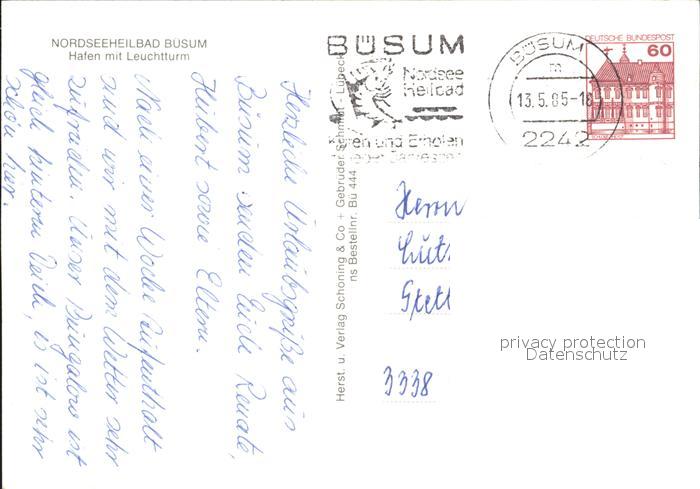 NORDSEEHEILBAD BÜSUM
Hafen mit Leuchtturm
Herzliche Urlaubsgrüße aus
Büsum senden Euch Renate,
Hubert sowie Eltern.
Nach einer Woche Aufenthalt
sind wir mit dem Wetter sehr
zufrieden. Unser Bungalow ist
gleich hinterm Deich, es ist sehr
schön hier.
Herst. u. Verlag Schöning & Co + Gebrüder Schmidt - Lübeck
Bestellnr. Bü 444
BÜSUM
Nordsee
Heilbad
und Erholen
BÜSUM
m
13.5.85-18
2242
DEUTSCHE BUNDESPOST
60
Herrn
3338
privacy protection
Datenschutz